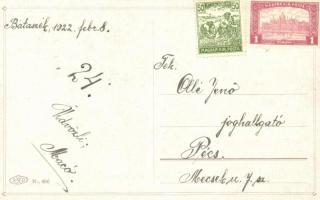 Bataszék, 1922. febr. 8.
24.
Üdvözli:
Macó
Tek.
Allé Jenő
joghallgató
Pécs.
Mecsek u. 7. sz.
50
MAGYAR KIR. POSTA
MAGYAR KIR. POSTA
1